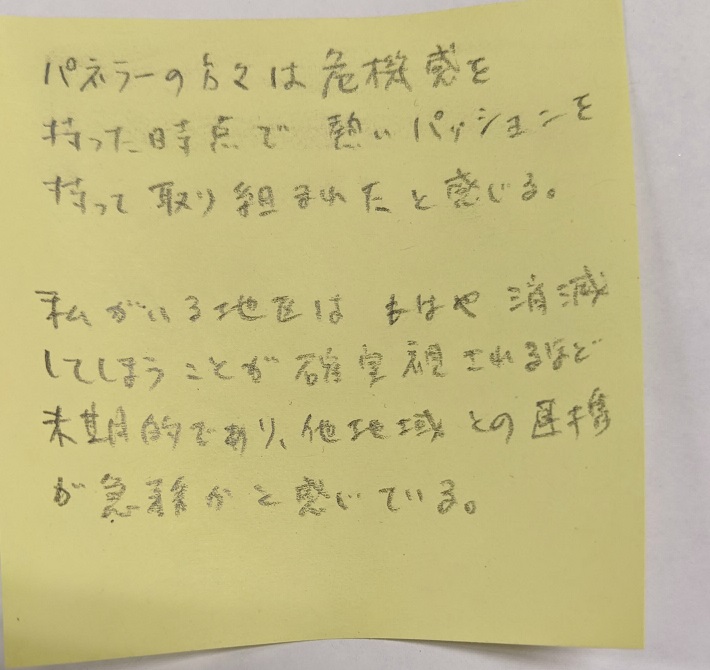 パネラーの方々は危機感を
持った時点で 熱いパッションを
持って取り組まれたと感じる。
私がいる地区は もはや 消滅
してしまうことが確実視されるほど
末期的であり、他地域との連携
が急務かと感じている。